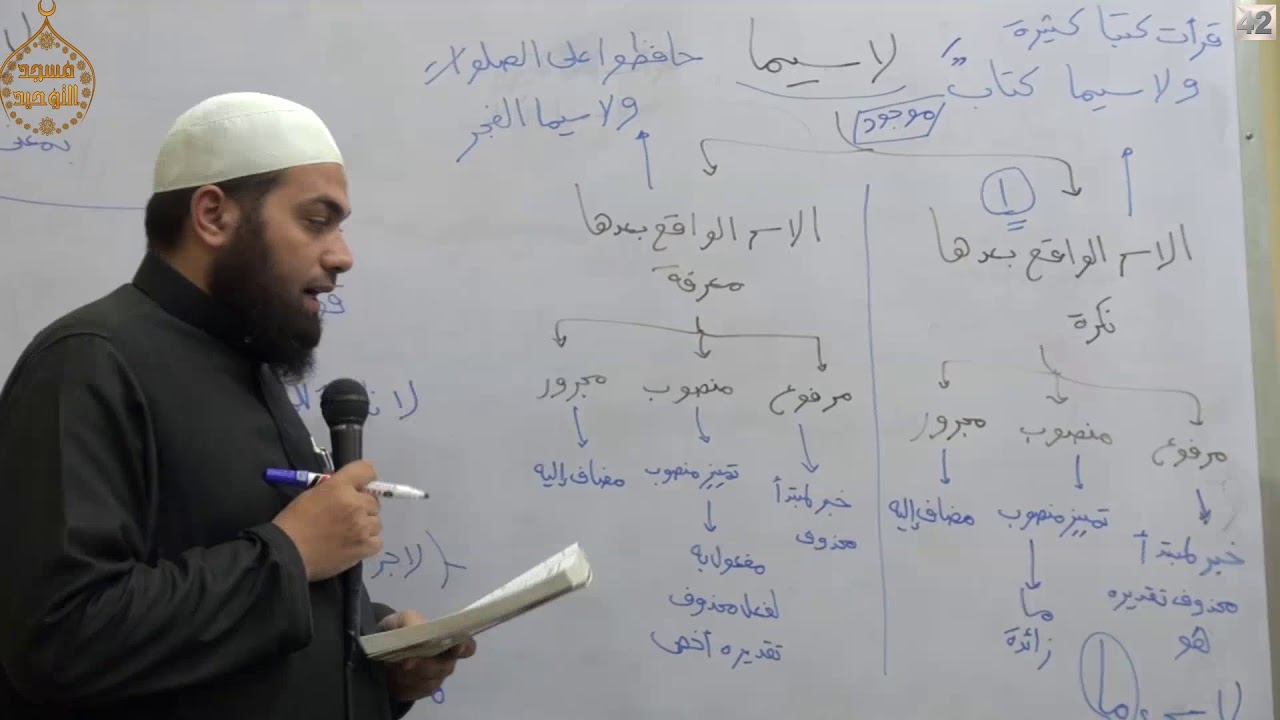 مسجد
التوحيد
42
قرأت كتبا كثيرة
ولاسيما كتابٌ
موجود
لاسيما
حافظوا على الصلوات
ولاسيما الفجر
١
الاسم الواقع بعدها
نكرة
مرفوع
منصوب
مجرور
خبر لمبتدأ
محذوف تقديره
هو
تمييز منصوب
ما
زائدة
مضاف إليه
الاسم الواقع بعدها
معرفة
مرفوع
منصوب
مجرور
خبر لمبتدأ
محذوف
تمييز منصوب
مفعول به
لفعل محذوف
تقديره أخص
مضاف إليه